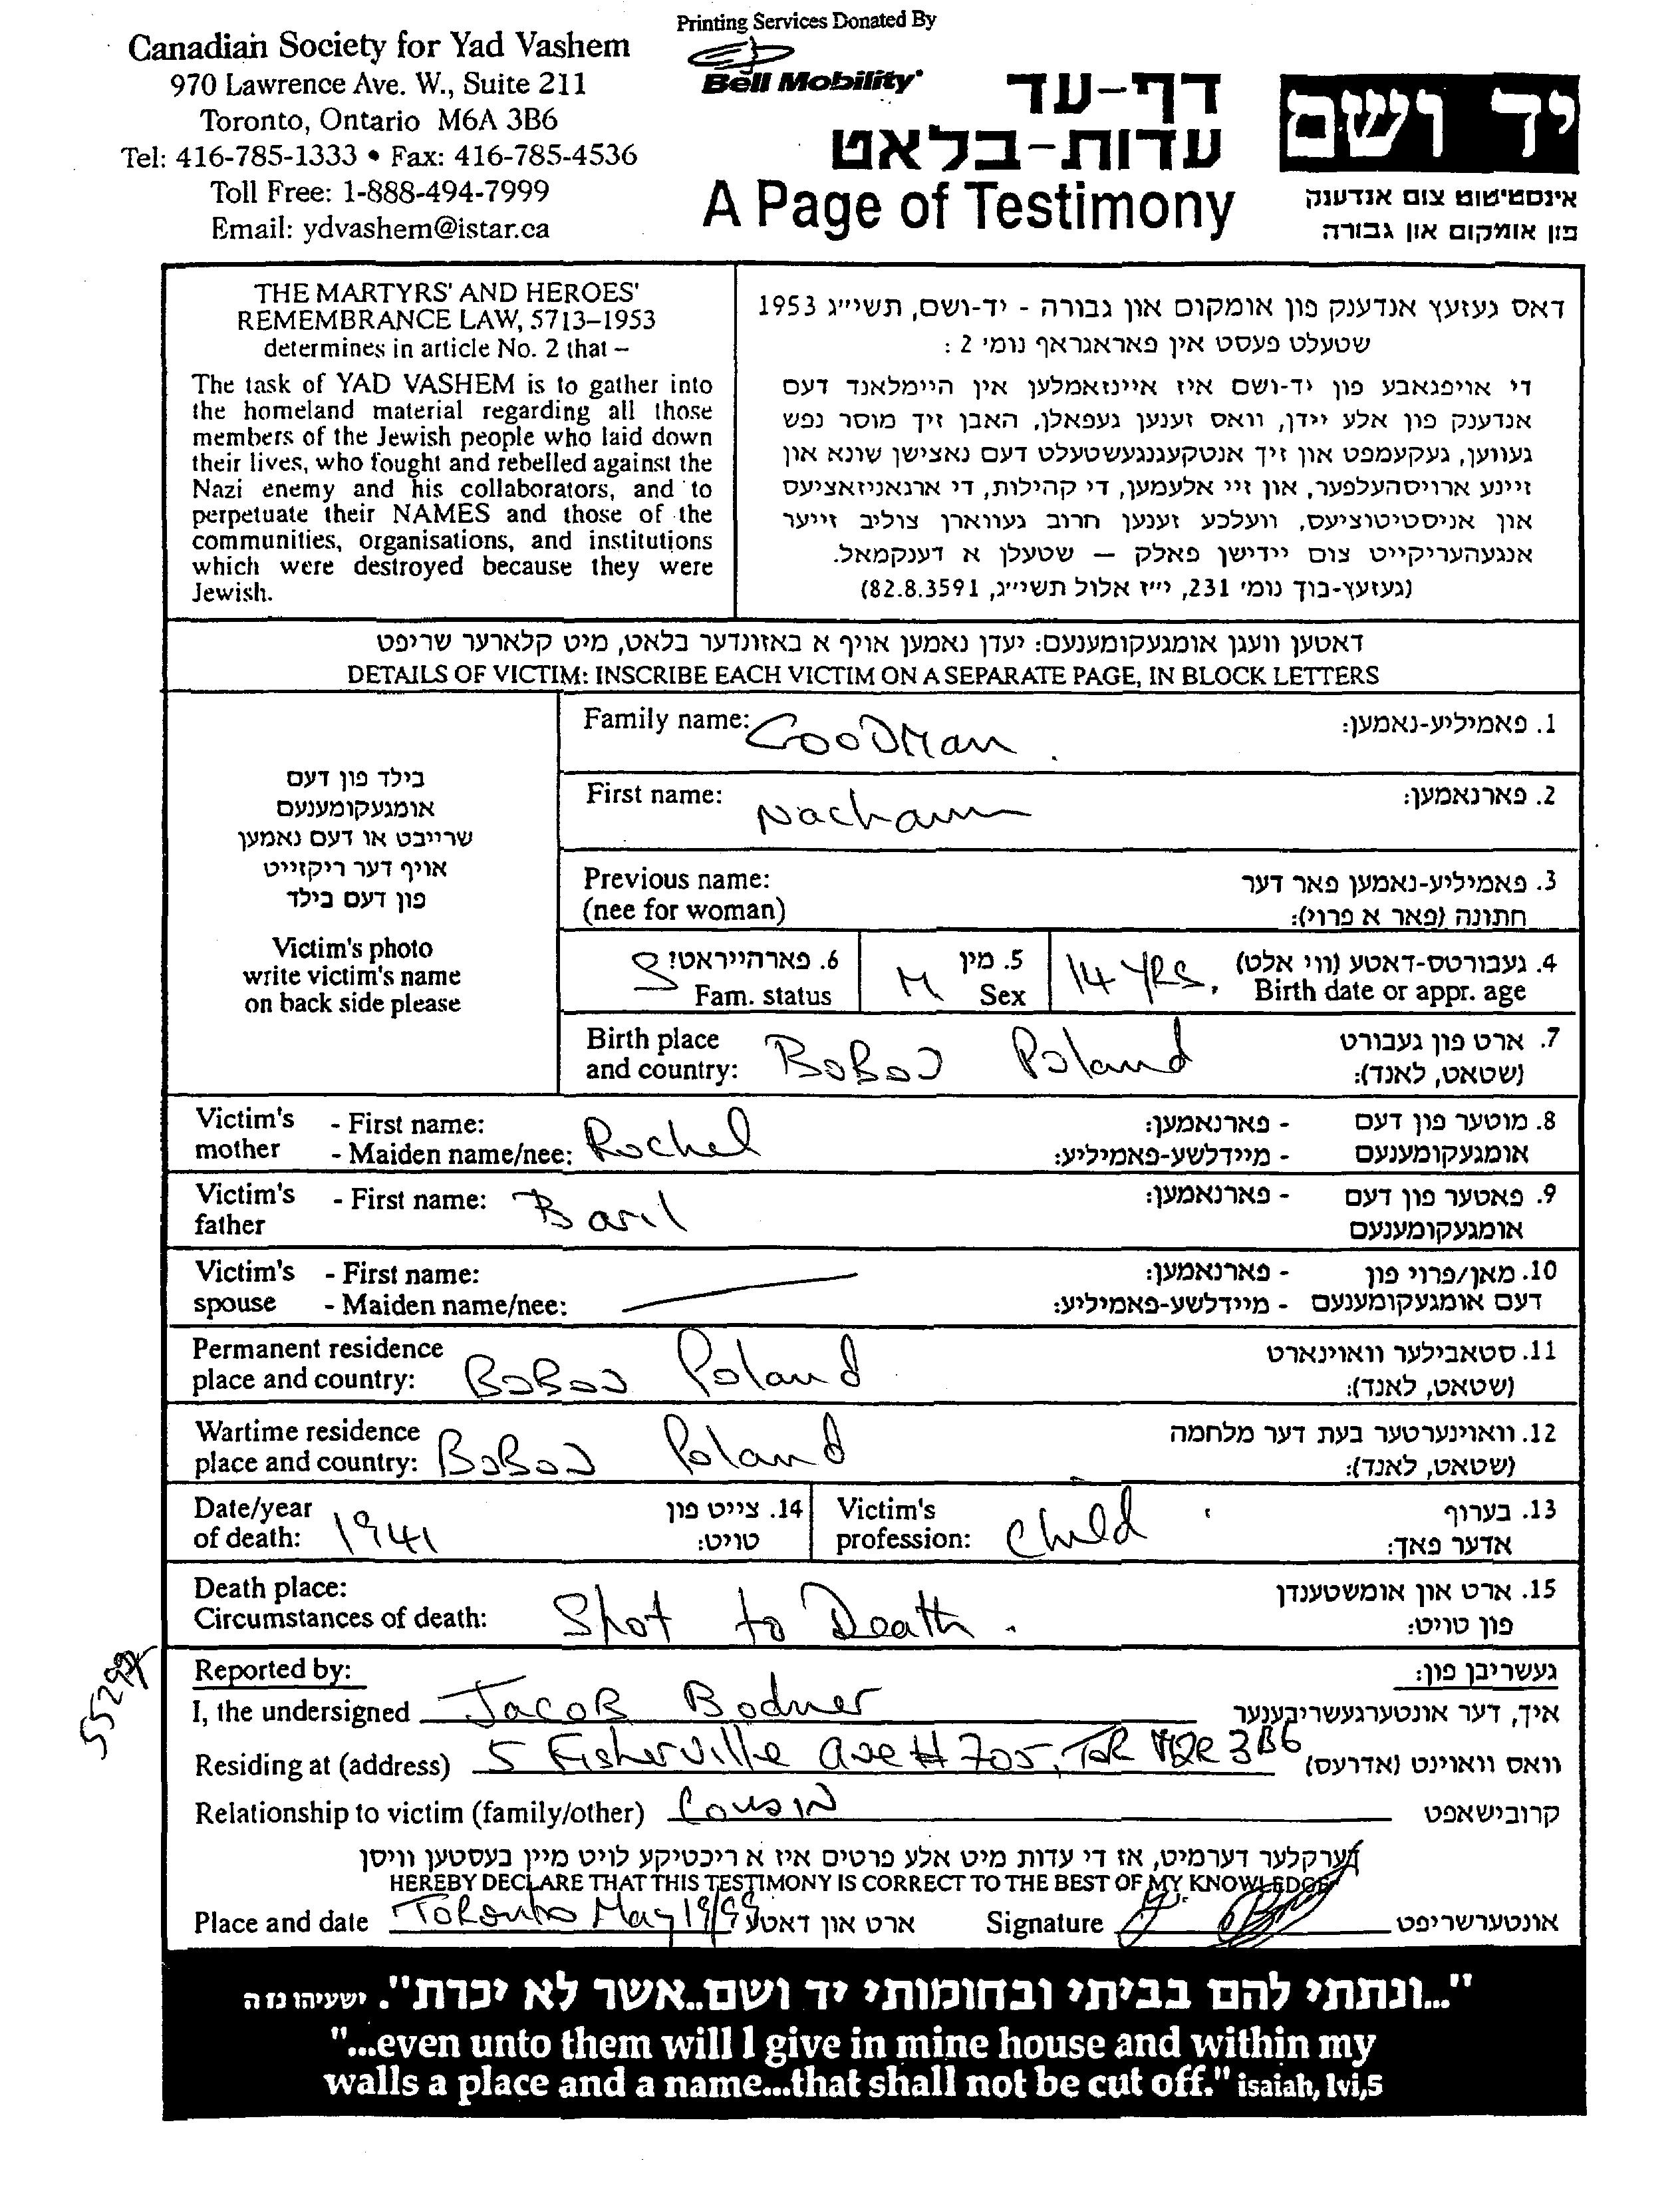 Printing Services Donated By
Bell Mobility
Canadian Society for Yad Vashem
970 Lawrence Ave. W., Suite 211
Toronto, Ontario M6A 3B6
Tel: 416-785-1333 • Fax: 416-785-4536
Toll Free: 1-888-494-7999
Email: ydvashem@istar.ca
דף-עד
עדות-בלאט
A Page of Testimony
יד ושם
אינסטיטוט צום אנדענק
פון אומקום און גבורה
THE MARTYRS' AND HEROES'
REMEMBRANCE LAW, 5713–1953
determines in article No. 2 that –
The task of YAD VASHEM is to gather into
the homeland material regarding all those
members of the Jewish people who laid down
their lives, who fought and rebelled against the
Nazi enemy and his collaborators, and to
perpetuate their NAMES and those of the
communities, organisations, and institutions
which were destroyed because they were
Jewish.
דאס געזעץ אנדענק פון אומקום און גבורה - יד-ושם, תשי״ג 1953
שטעלט פעסט אין פאראגראף נומי 2 :
די אויפגאבע פון יד-ושם איז איינזאמלען אין היימלאנד דעם
אנדענק פון אלע יידן, וואס זענען געפאלן, האבן זיך מוסר נפש
געווען, געקעמפט און זיך אנטקעגנגעשטעלט דעם נאצישן שונא און
זיינע ארויסהעלפער, און זיי אלעמען, די קהילות, די ארגאניזאציעס
און אניסטיטוציעס, וועלכע זענען חרוב געווארן צוליב זייער
אנגעהעריקייט צום יידישן פאלק – שטעלן א דענקמאל.
(געזעץ-בוך נומי 231, י״ז אלול תשי״ג, 82.8.3591)
דאטען וועגן אומגעקומענעם: יעדן נאמען אויף א באזונדער בלאט, מיט קלארער שריפט
DETAILS OF VICTIM: INSCRIBE EACH VICTIM ON A SEPARATE PAGE, IN BLOCK LETTERS
בילד פון דעם
אומגעקומענעם
שרייבט או דעם נאמען
אויף דער ריקזייט
פון דעם בילד
Victim's photo
write victim's name
on back side please
Family name: GOODMan 1. פאמיליע-נאמען:
First name: Nachann 2. פארנאמען:
Previous name: 3. פאמיליע-נאמען פאר דער
(nee for woman) חתונה (פאר א פרוי):
S 6. פארהייראט? M 5. מין 14 YRS. 4. געבורטס-דאטע (ווי אלט)
Fam. status Sex Birth date or appr. age
Birth place BoBow Poland 7. ארט פון געבורט
and country: (שטאט, לאנד):
Victim's - First name: Rochel - פארנאמען: 8. מוטער פון דעם
mother - Maiden name/nee: - מיידלשע-פאמיליע: אומגעקומענעם
Victim's - First name: Baril - פארנאמען: 9. פאטער פון דעם
father אומגעקומענעם
Victim's - First name: - פארנאמען: 10. מאן/פרוי פון
spouse - Maiden name/nee: - מיידלשע-פאמיליע: דעם אומגעקומענעם
Permanent residence 11. סטאבילער וואוינארט
place and country: BoBow Poland (שטאט, לאנד):
Wartime residence 12. וואוינערטער בעת דער מלחמה
place and country: BoBow Poland (שטאט, לאנד):
Date/year 1941 14. צייט פון Victim's Child 13. בערוף
of death: טויט: profession: אדער פאך:
Death place: 15. ארט און אומשטענדן
Circumstances of death: Shot to Death. פון טויט:
Reported by: געשריבן פון:
I, the undersigned Jacob Bodner איך, דער אונטערגעשריבענער
Residing at (address) 5 Fisherville Ave # 705, ToR M2R 3B6 וואס וואוינט (אדרעס)
Relationship to victim (family/other) Cousin קרובישאפט
ערקלער דערמיט, אז די עדות מיט אלע פרטים איז א ריכטיקע לויט מיין בעסטען וויסן
HEREBY DECLARE THAT THIS TESTIMONY IS CORRECT TO THE BEST OF MY KNOWLEDGE
Place and date Toronto May 19/99 ארט און דאטע Signature אונטערשריפט
"...ונתתי להם בביתי ובחומותי יד ושם..אשר לא יכרת". ישעיהו נז ה
"...even unto them will I give in mine house and within my
walls a place and a name...that shall not be cut off." isaiah, lvi,5